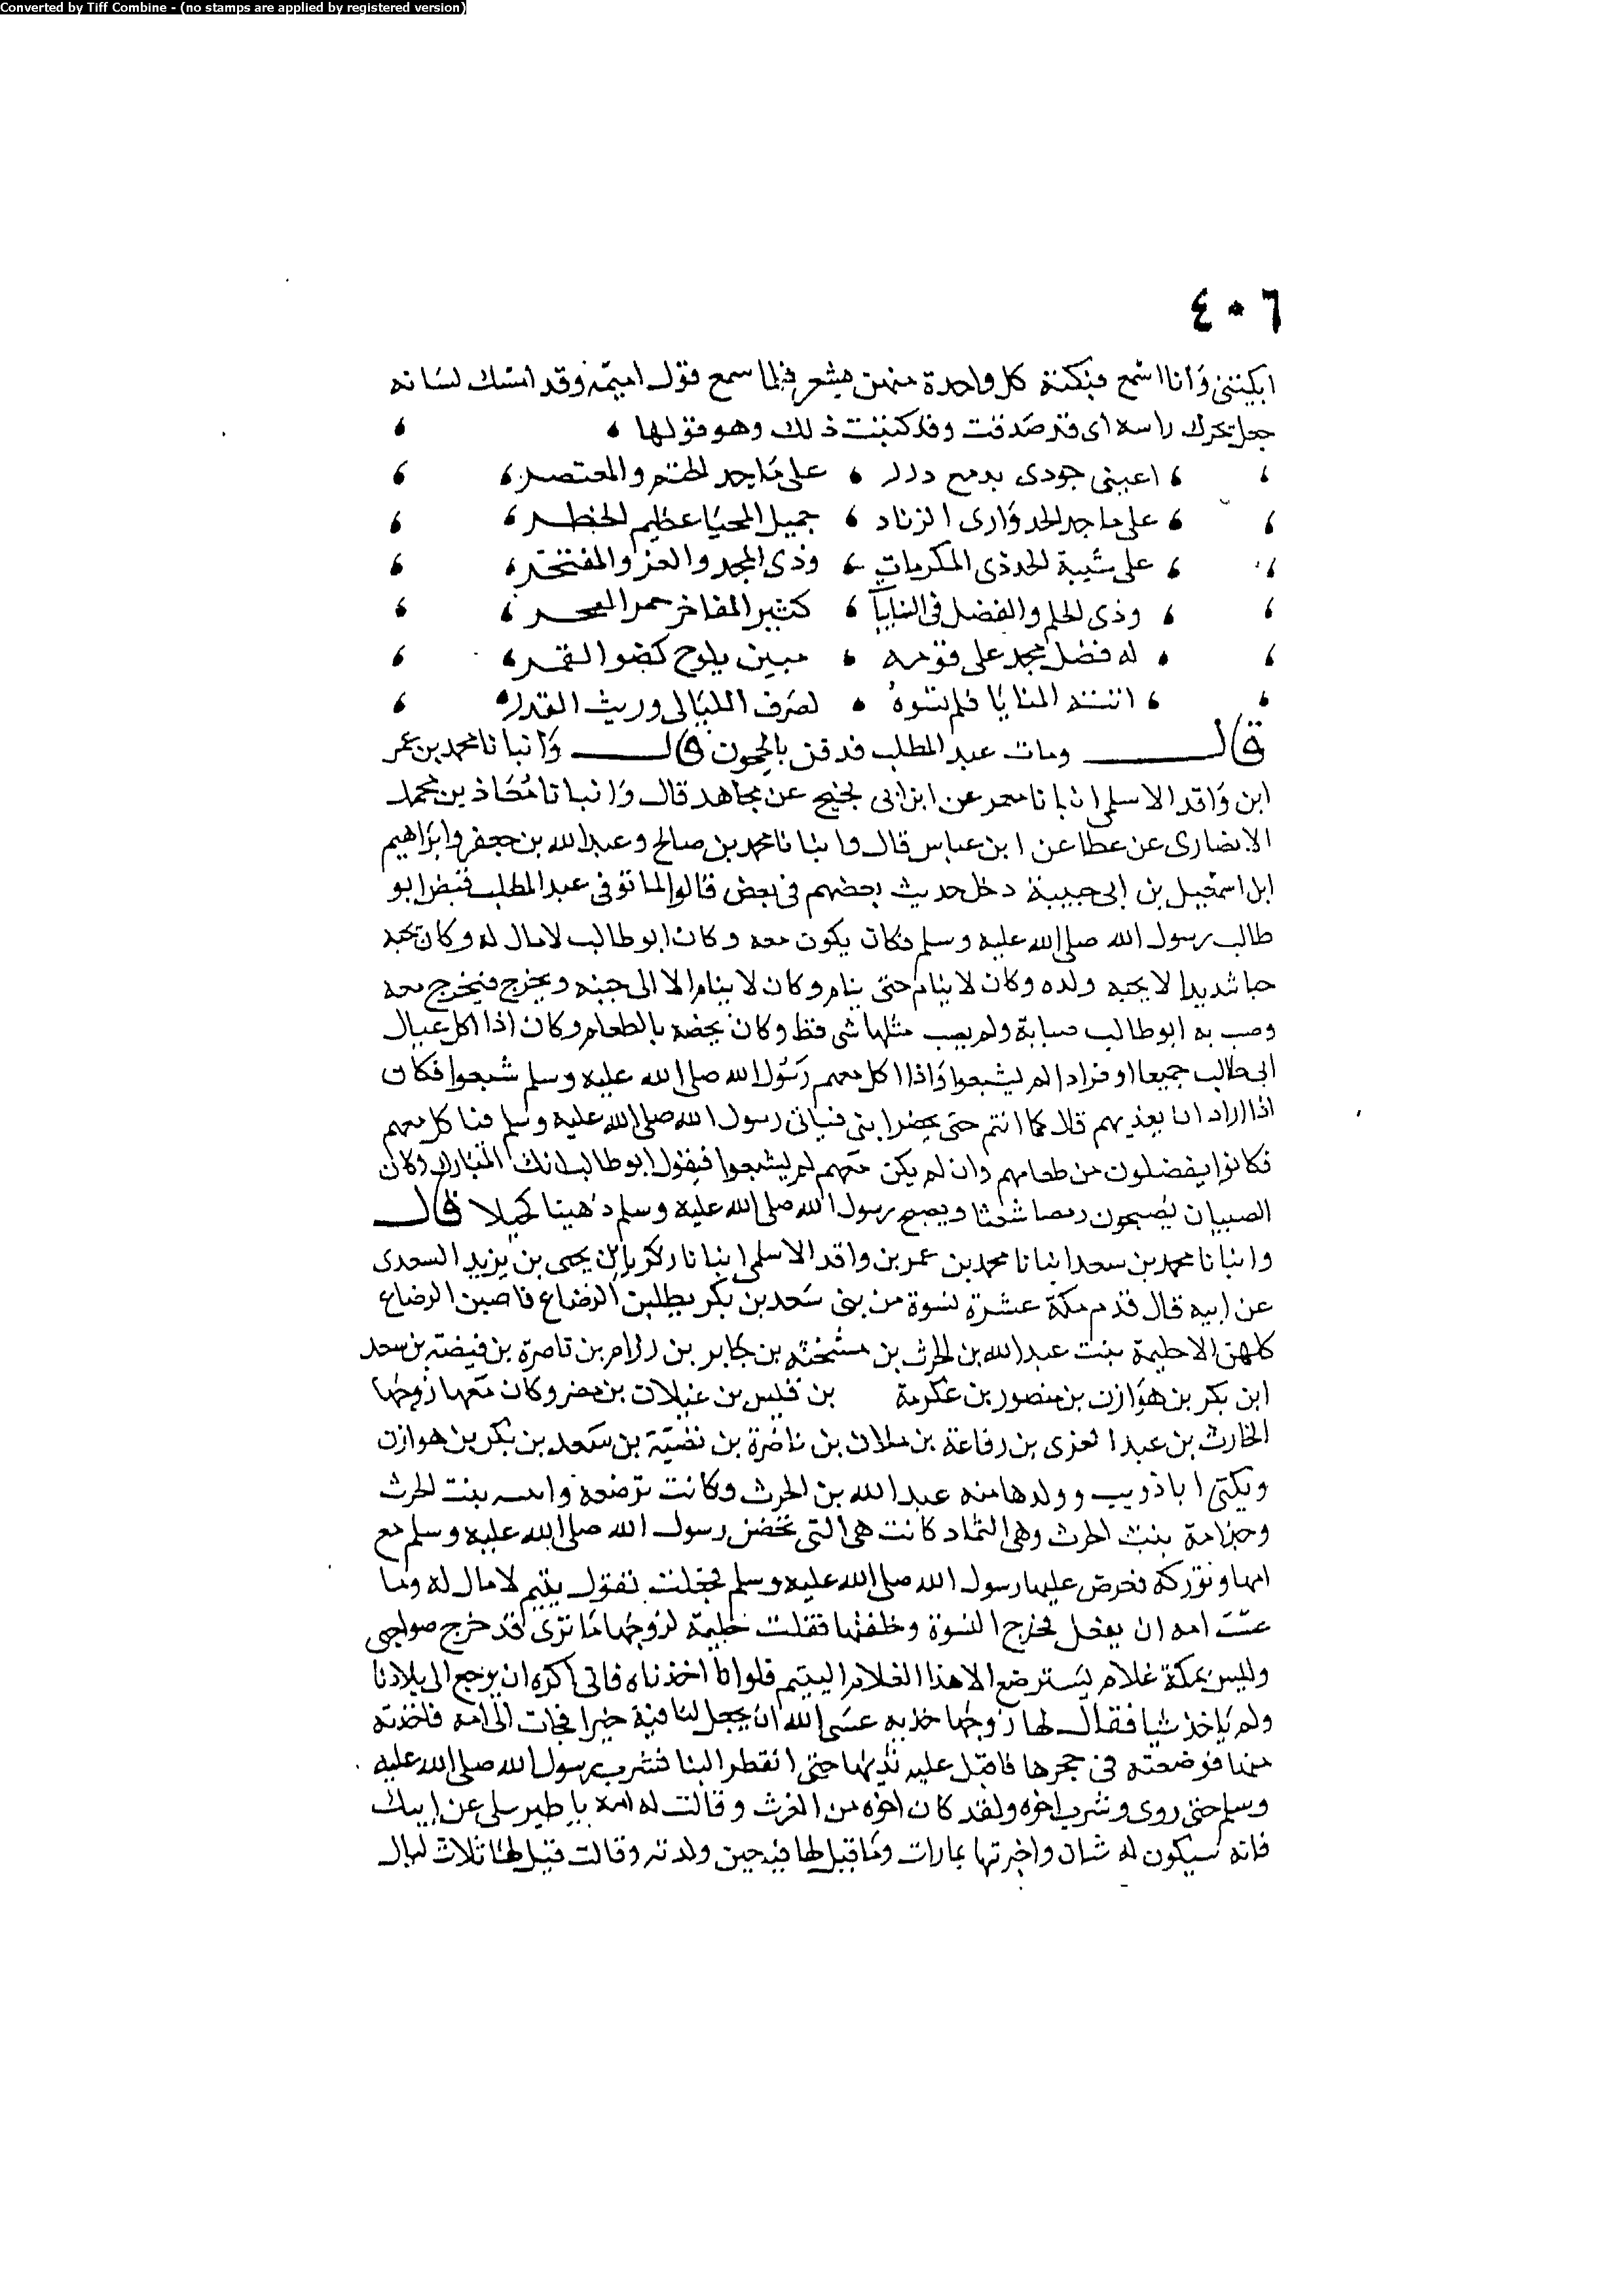 Converted by Tiff Combine - (no stamps are applied by registered version)
٤٠٦
ابكينني وانا اسمع فبكته كل واحدة منهن بشعر فلما سمع قول اميمة وقد امسك لسانه
جعل يحرك راسه اى قد صدقت وقد كنت ذلك وهو قولها
اعيني جودى بدمع درر على ماجد الخيم والمعتصر
على ماجد الجد وارى الزناد جميل المحيا عظيم الخطر
على شيبة الحمد ذى المكرمات وذى المجد والعز والمفتخر
وذى الحلم والفضل فى النايبات كثير المفاخر جم الفخر
له فضل مجد على قومه مبين يلوح كضو القمر
اتته المنايا فلم تشوه لصرف الليالى وريث القدر
قال ومات عبد المطلب فدفن بالحجون قال وانبانا محمد بن عمر
ابن واقد الاسلمى انبانا معمر عن ابن ابى نجيح عن مجاهد قال وانبانا معاذ بن محمد
الانصارى عن عطا عن ابن عباس قال وانبانا محمد بن صالح وعبد الله بن جعفر وابراهيم
ابن اسمعيل بن ابى حبيبة دخل حديث بعضهم فى بعض قالوا لما توفى عبد المطلب قبض ابو
طالب رسول الله صلى الله عليه وسلم فكان يكون معه وكان ابو طالب لا مال له وكان يحبه
حبا شديدا لا يحبه ولده وكان لا ينام حتى ينام وكان لا ينام الا الى جنبه ويخرج فيخرج معه
وصب به ابو طالب صبابة ولم يصب مثلها شى قط وكان يخصه بالطعام وكان اذا اكل عيال
ابى طالب جميعا او فرادا لم يشبعوا واذا اكل معهم رسول الله صلى الله عليه وسلم شبعوا فكان
اذا اراد ان يغذيهم قال كما انتم حتى يحضر ابنى فياتى رسول الله صلى الله عليه وسلم فياكل معهم
فكانوا يفضلون من طعامهم وان لم يكن معهم لم يشبعوا فيقول ابو طالب انك المبارك وكان
الصبيان يصبحون رمصا شعثا ويصبح رسول الله صلى الله عليه وسلم دهينا كحيلا قال
وانبانا محمد بن سعد انبانا محمد بن عمر بن واقد الاسلمى انبانا زكريا بن يحيى بن يزيد السعدى
عن ابيه قال قدم مكة عشرة نسوة من بنى سعد بن بكر يطلبن الرضاع فاصبن الرضاع
كلهن الا حليمة بنت عبد الله بن الحرث بن شجنة بن جابر بن رزام بن ناصرة بن فيضة بن سعد
ابن بكر بن هوازن بن منصور بن عكرمة بن قيس بن عيلان بن مضر وكان معها زوجها
الحارث بن عبد العزى بن رفاعة بن ملان بن ناضرة بن نضية بن سعد بن بكر بن هوازن
ويكنى ابا ذويب وولدها منه عبد الله بن الحرث وكانت ترضعه وانيسه بنت الحرث
وجدامة بنت الحرث وهى الشماد كانت هى التى تحضن رسول الله صلى الله عليه وسلم مع
امها وتوركه فعرض عليها رسول الله صلى الله عليه وسلم فجعلت تقول يتيم لا مال له وما
عست امه ان يفعل فخرج النسوة وخلفنها فقلت حليمة لزوجها ما ترى قد خرج صواحبى
وليس بمكة غلام يسترضع الا هذا الغلام اليتيم فلو انا اخذناه فانى اكره ان يرجع الى بلادنا
ولم ياخذ شيا فقال لها زوجها خذيه عسى الله ان يجعل لنا فيه خيرا فجات الى امه فاخذته
منها فوضعته فى حجرها فاقبل عليه ثدياها حتى انقطر البنا فشرب رسول الله صلى الله عليه
وسلم حتى روى وشرب اخوه ولقد كان اخوه من الغرث وقالت له امه يا طير سلى عن ابيك
فانه سيكون له شان واخبرتها بمارات وما قيل لها فيه حين ولدته وقالت قيل لها ثلاث ليال